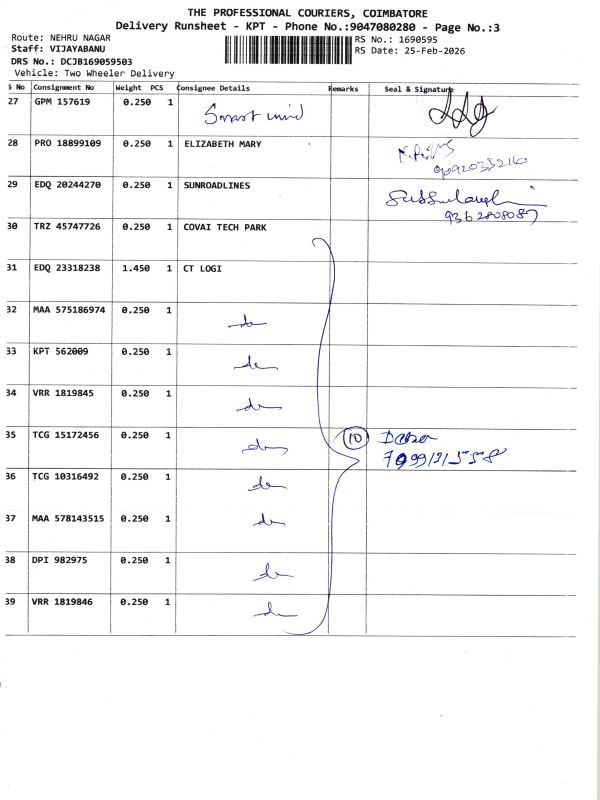 THE PROFESSIONAL COURIERS, COIMBATORE
Delivery Runsheet - KPT - Phone No.:9047080280 - Page No.:3
Route: NEHRU NAGAR
RS No.: 1690595
Staff: VIJAYABANU
RS Date: 25-Feb-2026
DRS No.: DCJB169059503
Vehicle: Two Wheeler Delivery
S No Consignment No Weight PCS Consignee Details Remarks Seal & Signature
27 GPM 157619 0.250 1
28 PRO 18899109 0.250 1 ELIZABETH MARY
9092035216
29 EDQ 20244270 0.250 1 SUNROADLINES
9362808087
30 TRZ 45747726 0.250 1 COVAI TECH PARK
31 EDQ 23318238 1.450 1 CT LOGI
32 MAA 575186974 0.250 1
33 KPT 562009 0.250 1
34 VRR 1819845 0.250 1
35 TCG 15172456 0.250 1 10
36 TCG 10316492 0.250 1
37 MAA 578143515 0.250 1
38 DPI 982975 0.250 1
39 VRR 1819846 0.250 1